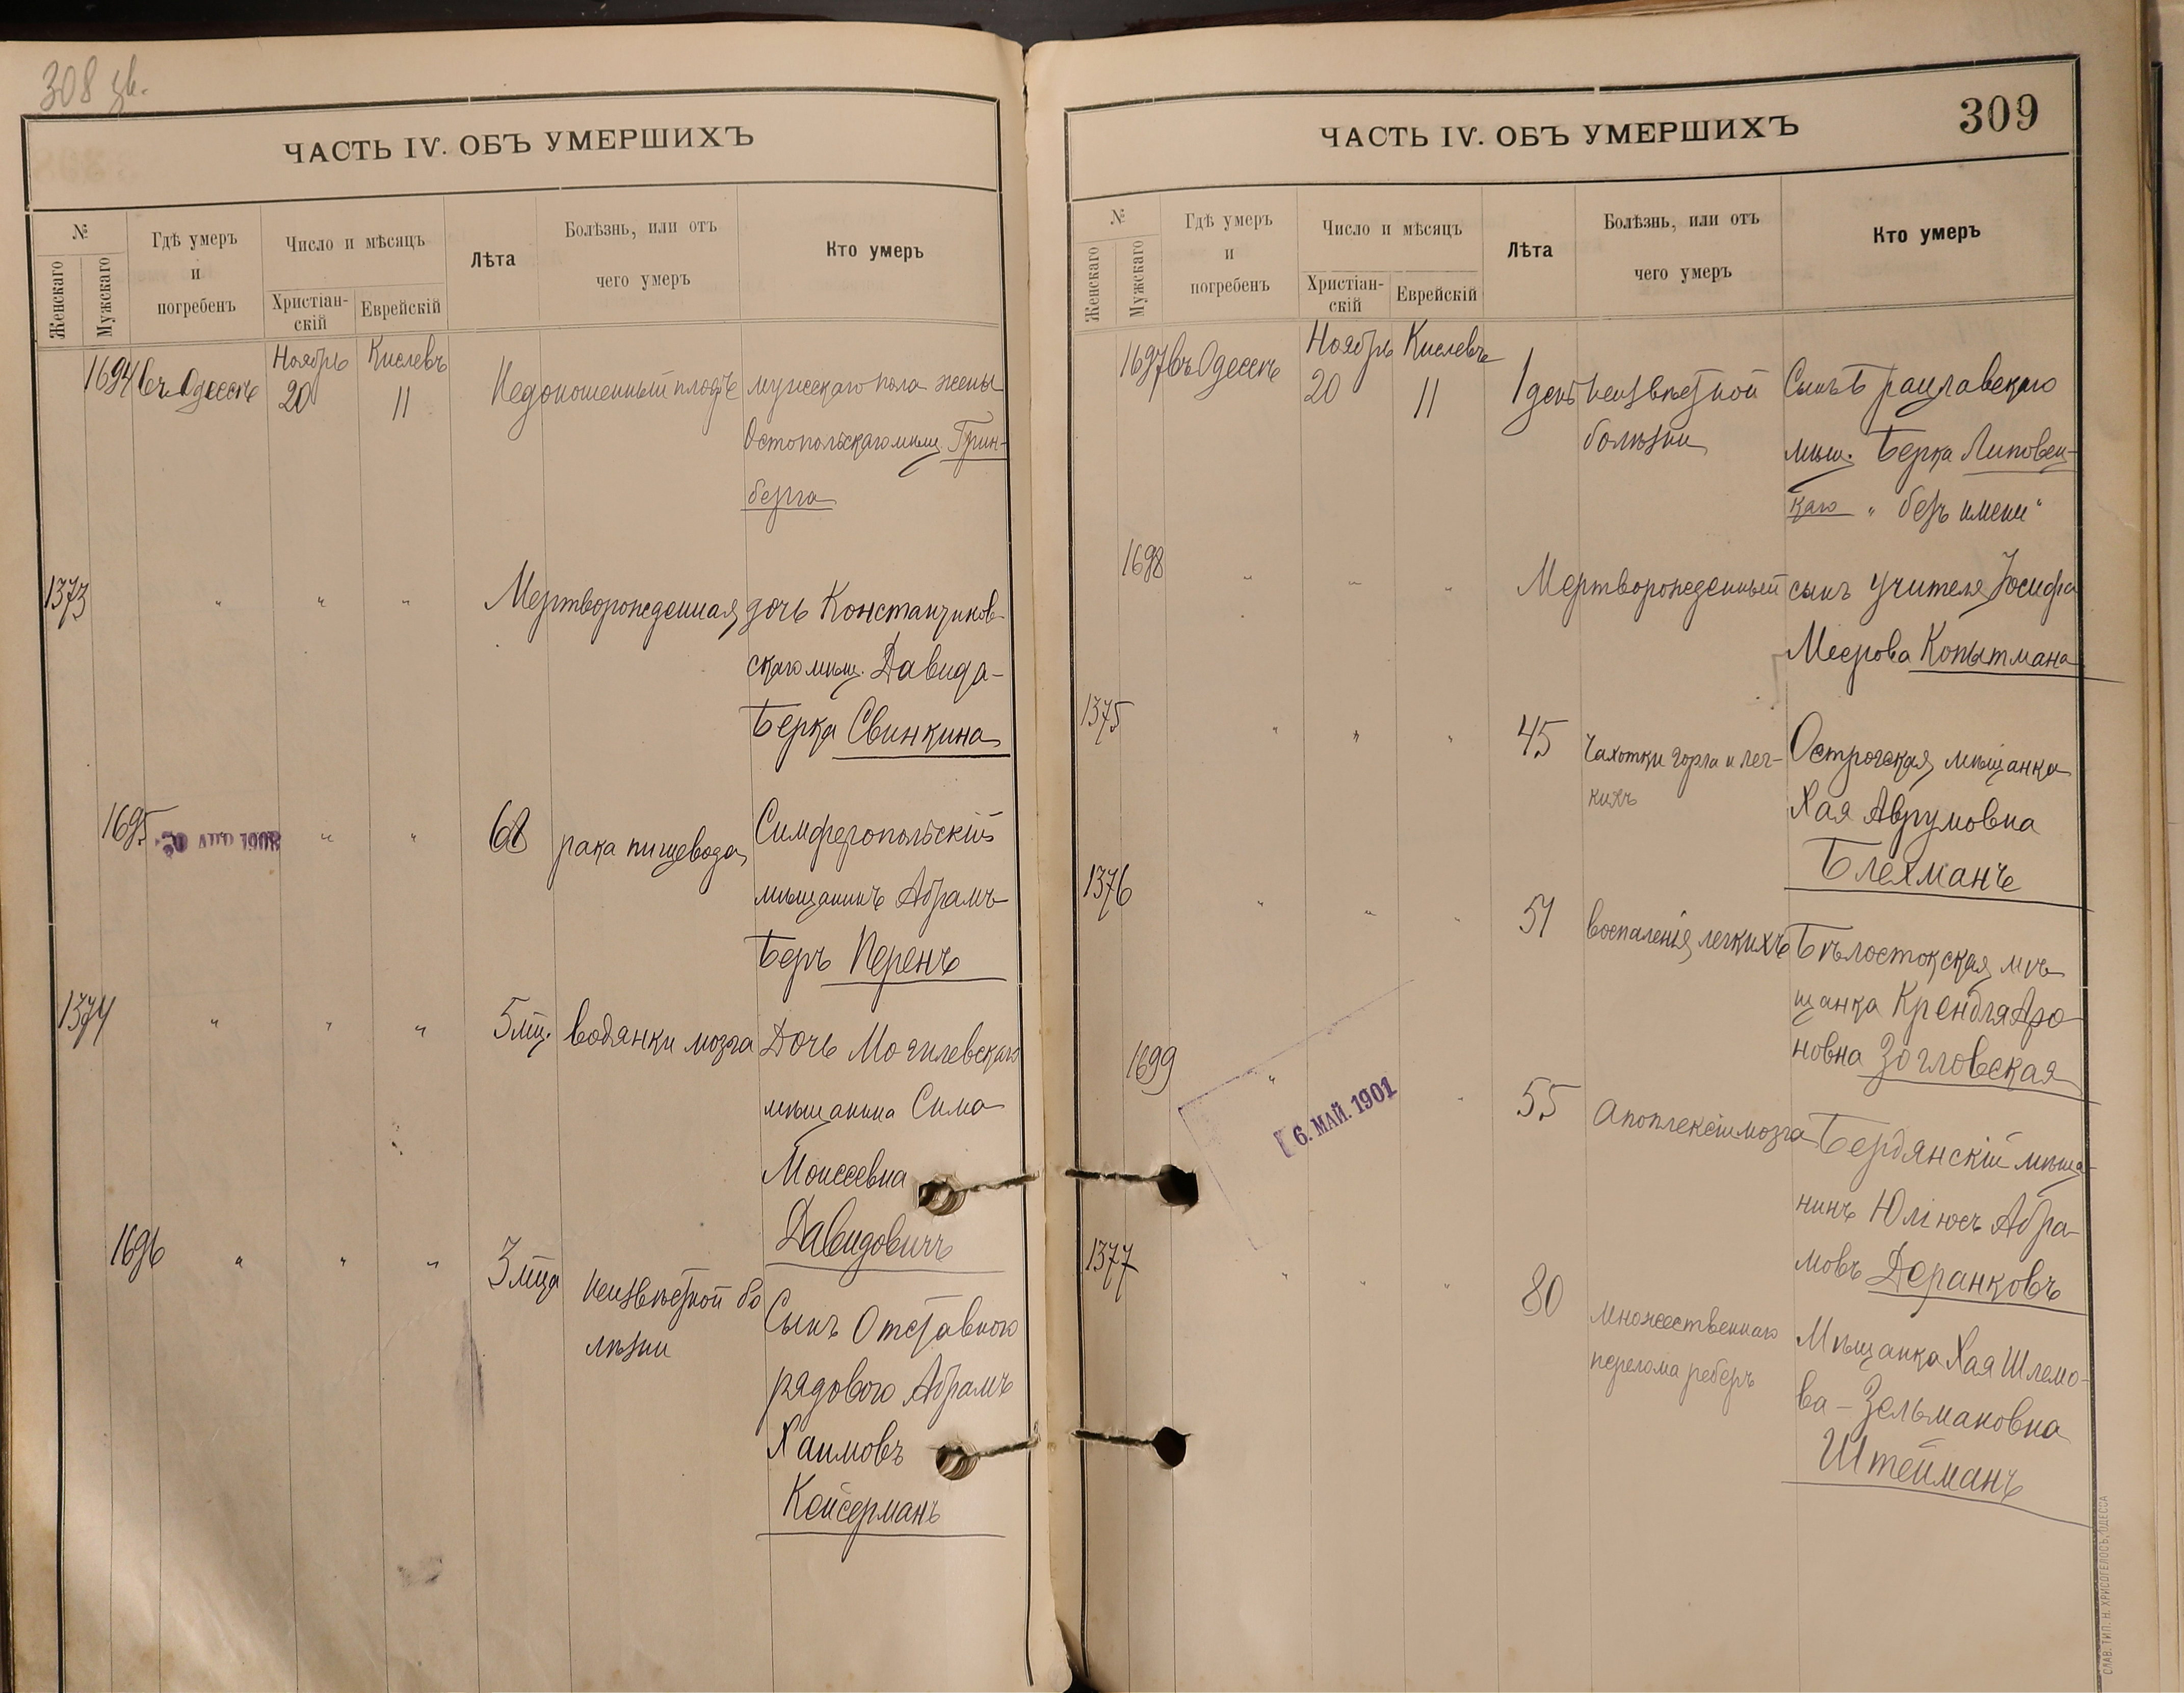 308 зв.
ЧАСТЬ IV. ОБЪ УМЕРШИХЪ
№
Женскаго
Мужскаго
Гдѣ умеръ
и
погребенъ
Число и мѣсяцъ
Христіан-
скій
Еврейскій
Лѣта
Болѣзнь, или отъ
чего умеръ
Кто умеръ
1694 въ Одессѣ Ноябрь 20 Кислевъ 11 Недоношенный плодъ мужескаго пола жены
Остопольскаго мѣщ. Грин-
берга
1373 " " " Мертворожденная дочь Константинов-
скаго мѣщ. Давида-
Берка Свинкина
1695 " " " 68 рака пищевода Симферопольскій
мѣщанинъ Абрамъ-
Беръ Перенъ
1374 " " " 5 мц. водянки мозга Дочь Могилевскаго
мѣщанина Сима
Моисеевна
Давидовичъ
1696 " " " 3 мца неизвѣстной бо Сынъ Отставного
лѣзни рядового Абрамъ
Хаимовъ
Койсерманъ
309
ЧАСТЬ IV. ОБЪ УМЕРШИХЪ
№
Женскаго
Мужскаго
Гдѣ умеръ
и
погребенъ
Число и мѣсяцъ
Христіан-
скій
Еврейскій
Лѣта
Болѣзнь, или отъ
чего умеръ
Кто умеръ
1697 въ Одессѣ Ноябрь 20 Кислевъ 11 1 день неизвѣстной Сынъ Брацлавскаго
болѣзни мѣщ. Берка Липовец-
каго „безъ имени“
1698 " " " Мертворожденный сынъ учителя Іосифа
Меерова Копытмана
1375 " " " 45 Чахотки горла и лег- Острогская мѣщанка
кихъ Хая Аврумовна
Блехманъ
1376 " " " 51 воспаленія легкихъ Бѣлостокская мѣ-
щанка Крендля Аро
новна Зогловская
1699 " " 55 Апоплексіи мозга Бердянскій мѣща-
нинъ Юліюсъ Абра-
мовъ Деранковъ
6. МАЙ. 1901
1377 " " " 80 множественнаго Мѣщанка Хая Шлемо-
перелома реберъ ва-Зельмановна
Штейманъ
СЛАВ. ТИП. Н. ХРИСОГЕЛОСЪ, ОДЕССА